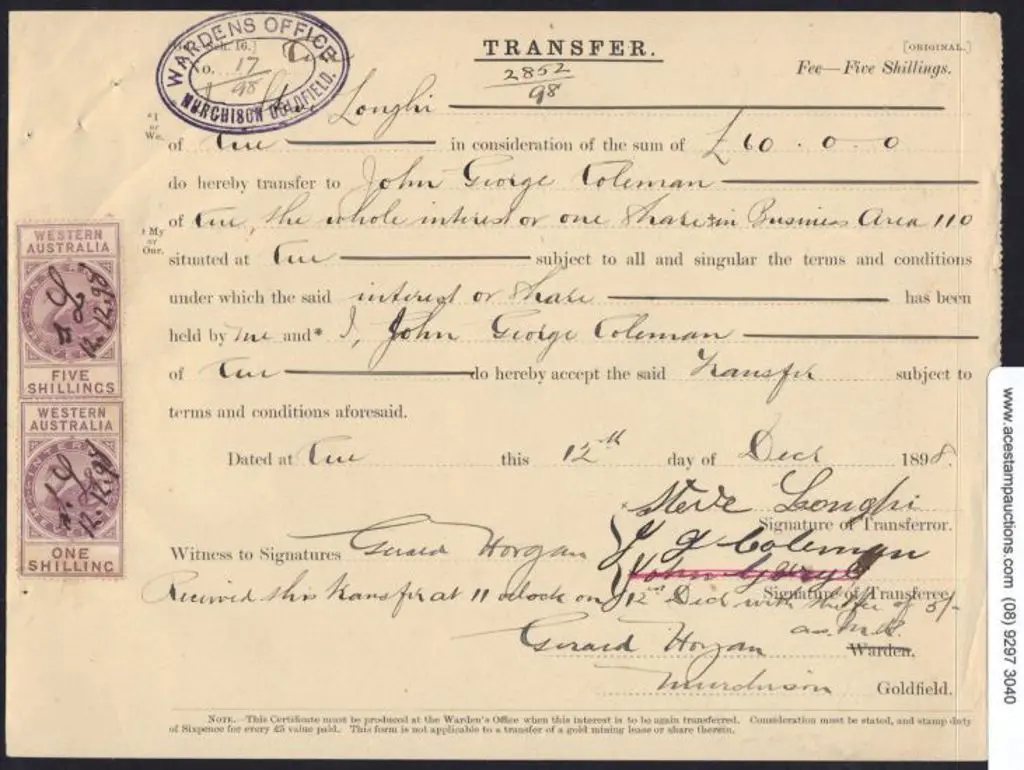 WARDENS OFFICE
MURCHISON GOLDFIELD.
Sch. 16.]
No. 17/98
TRANSFER.
2852/98
[ORIGINAL.]
Fee—Five Shillings.
*I or We, Steve Longhi
of Cue in consideration of the sum of £60 . 0 . 0
do hereby transfer to John George Coleman
† My or Our. of Cue, the whole interest or one share in Business Area 110
situated at Cue subject to all and singular the terms and conditions
under which the said interest or share has been
held by me and* I, John George Coleman
of Cue do hereby accept the said Transfer subject to
terms and conditions aforesaid.
Dated at Cue this 12th day of Decr 1898.
Steve Longhi
Signature of Transferror.
Witness to Signatures Gerard Horgan J G Coleman
John George
Signature of Transferee.
Received this transfer at 11 oclock on 12th Decr with the fee of 5/-
Gerard Horgan
Warden.
Murchison Goldfield.
NOTE.—This Certificate must be produced at the Warden's Office when this interest is to be again transferred. Consideration must be stated, and stamp duty
of Sixpence for every £5 value paid. This form is not applicable to a transfer of a gold mining lease or share therein.
WESTERN
AUSTRALIA
12.12.98
FIVE
SHILLINGS
WESTERN
AUSTRALIA
12.12.98
ONE
SHILLING
www.acestampauctions.com (08) 9297 3040